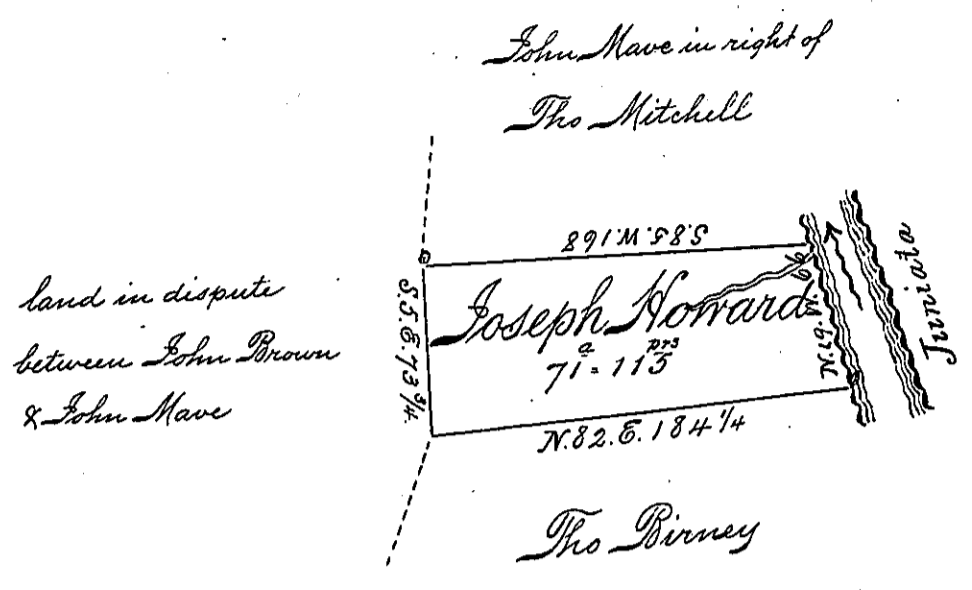 John Mave in right of
Tho Mitchell
S.85.W.168
land in dispute
between John Brown
& John Mave
S.5.E.73¾.
Joseph Howard
71ᵃ = 115 prs
N.19.W.66
Juniata
N.82.E.184¼
Tho Birney